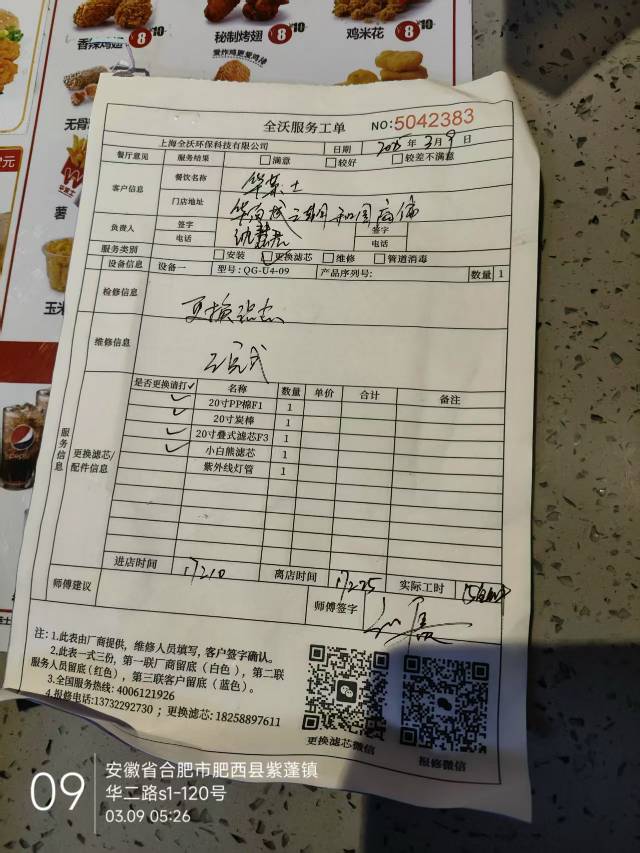 香辣烤翅 8 10
秘制烤翅 8 10
鸡米花 8 10
无骨
薯
玉米
全沃服务工单 NO:5042383
上海全沃环保科技有限公司 日期 2025年3月9日
餐厅意见 服务结果 满意 较好 较差不满意
客户信息 餐饮名称 华莱士
门店地址
负责人 签字 签字
电话 电话
服务类别 安装 更换滤芯 维修 管道消毒
设备信息 设备一 型号: QG-U4-09 产品序列号: 数量 1
检修信息 更换滤芯
维修信息 已完成
服务信息 更换滤芯/配件信息
是否更换请打✓ 名称 数量 单价 合计 备注
✓ 20寸PP棉F1 1
✓ 20寸炭棒 1
✓ 20寸叠式滤芯F3 1
✓ 小白熊滤芯 1
紫外线灯管 1
进店时间 17210 离店时间 17225 实际工时
师傅建议 师傅签字
注: 1.此表由厂商提供, 维修人员填写, 客户签字确认。
2.此表一式三份, 第一联厂商留底 (白色), 第二联
服务人员留底(红色), 第三联客户留底 (蓝色)。
3.全国服务热线: 4006121926
4.报修电话:13732292730 ; 更换滤芯: 18258897611
更换滤芯微信 报修微信
09 安徽省合肥市肥西县紫蓬镇
华二路s1-120号
03.09 05:26